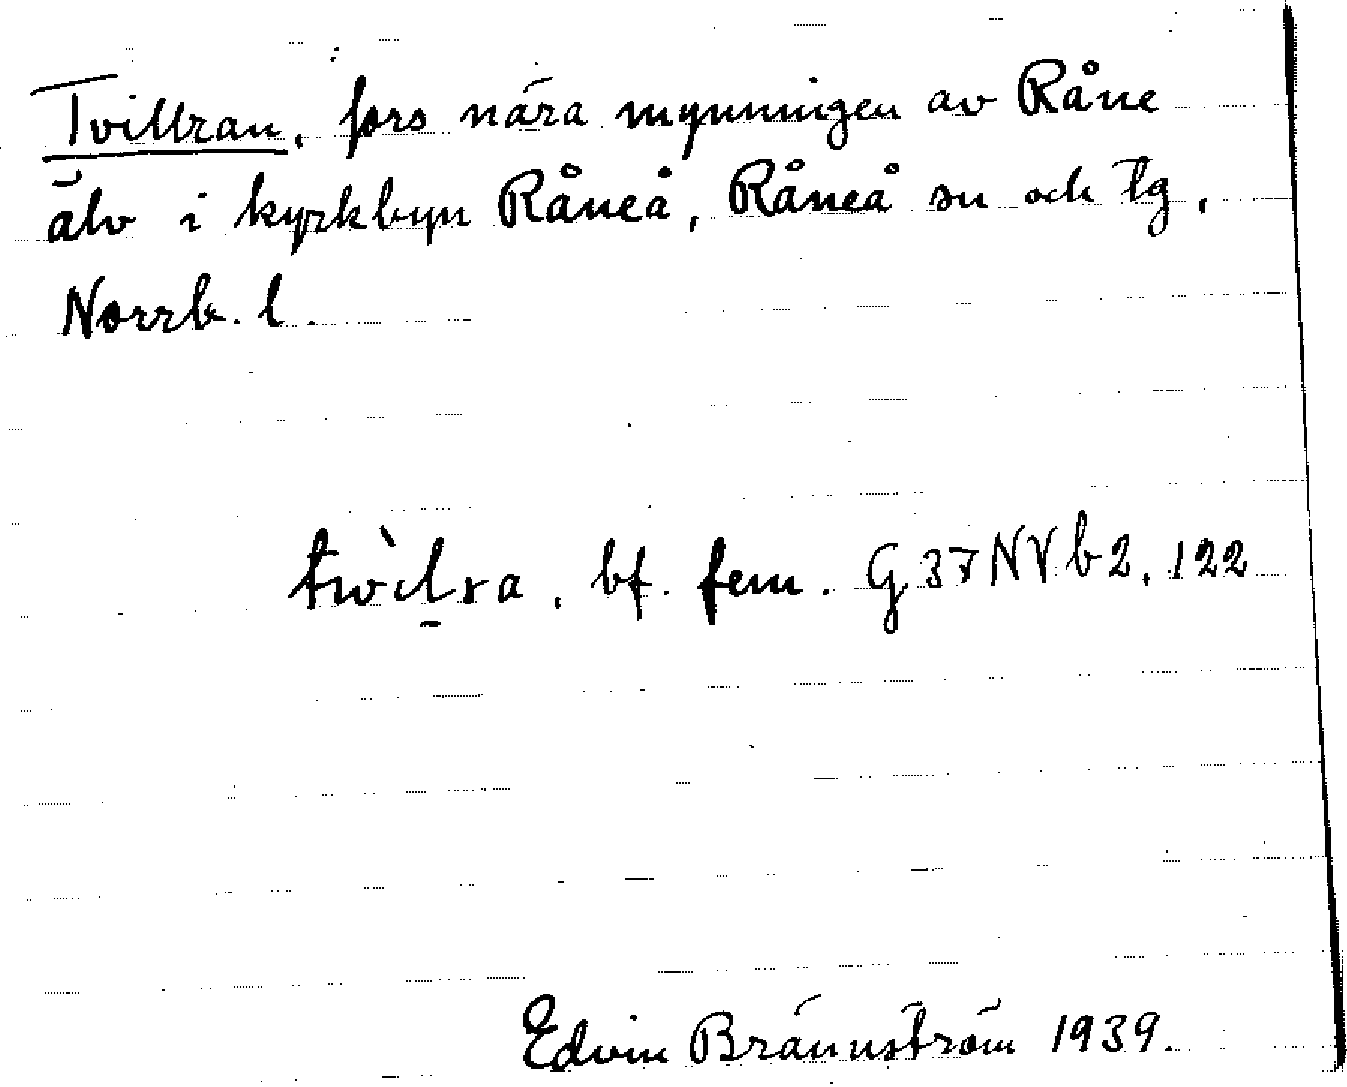 Tvillran, fors nära mynningen av Råne
älv i kyrkbyn Råneå, Råneå sn och tg,
Norrb. l.
twìl̠ra, bf. fem. G37NVb2, 122
Edvin Brännström 1939.